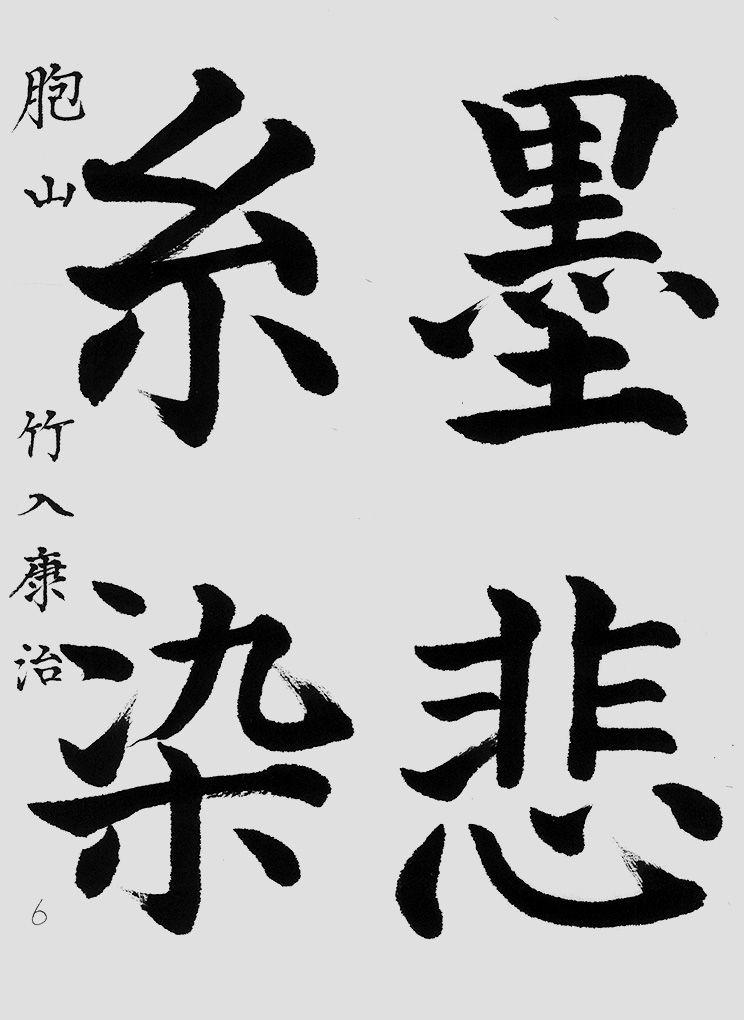 墨悲
糸染
胞山 竹入康治
6